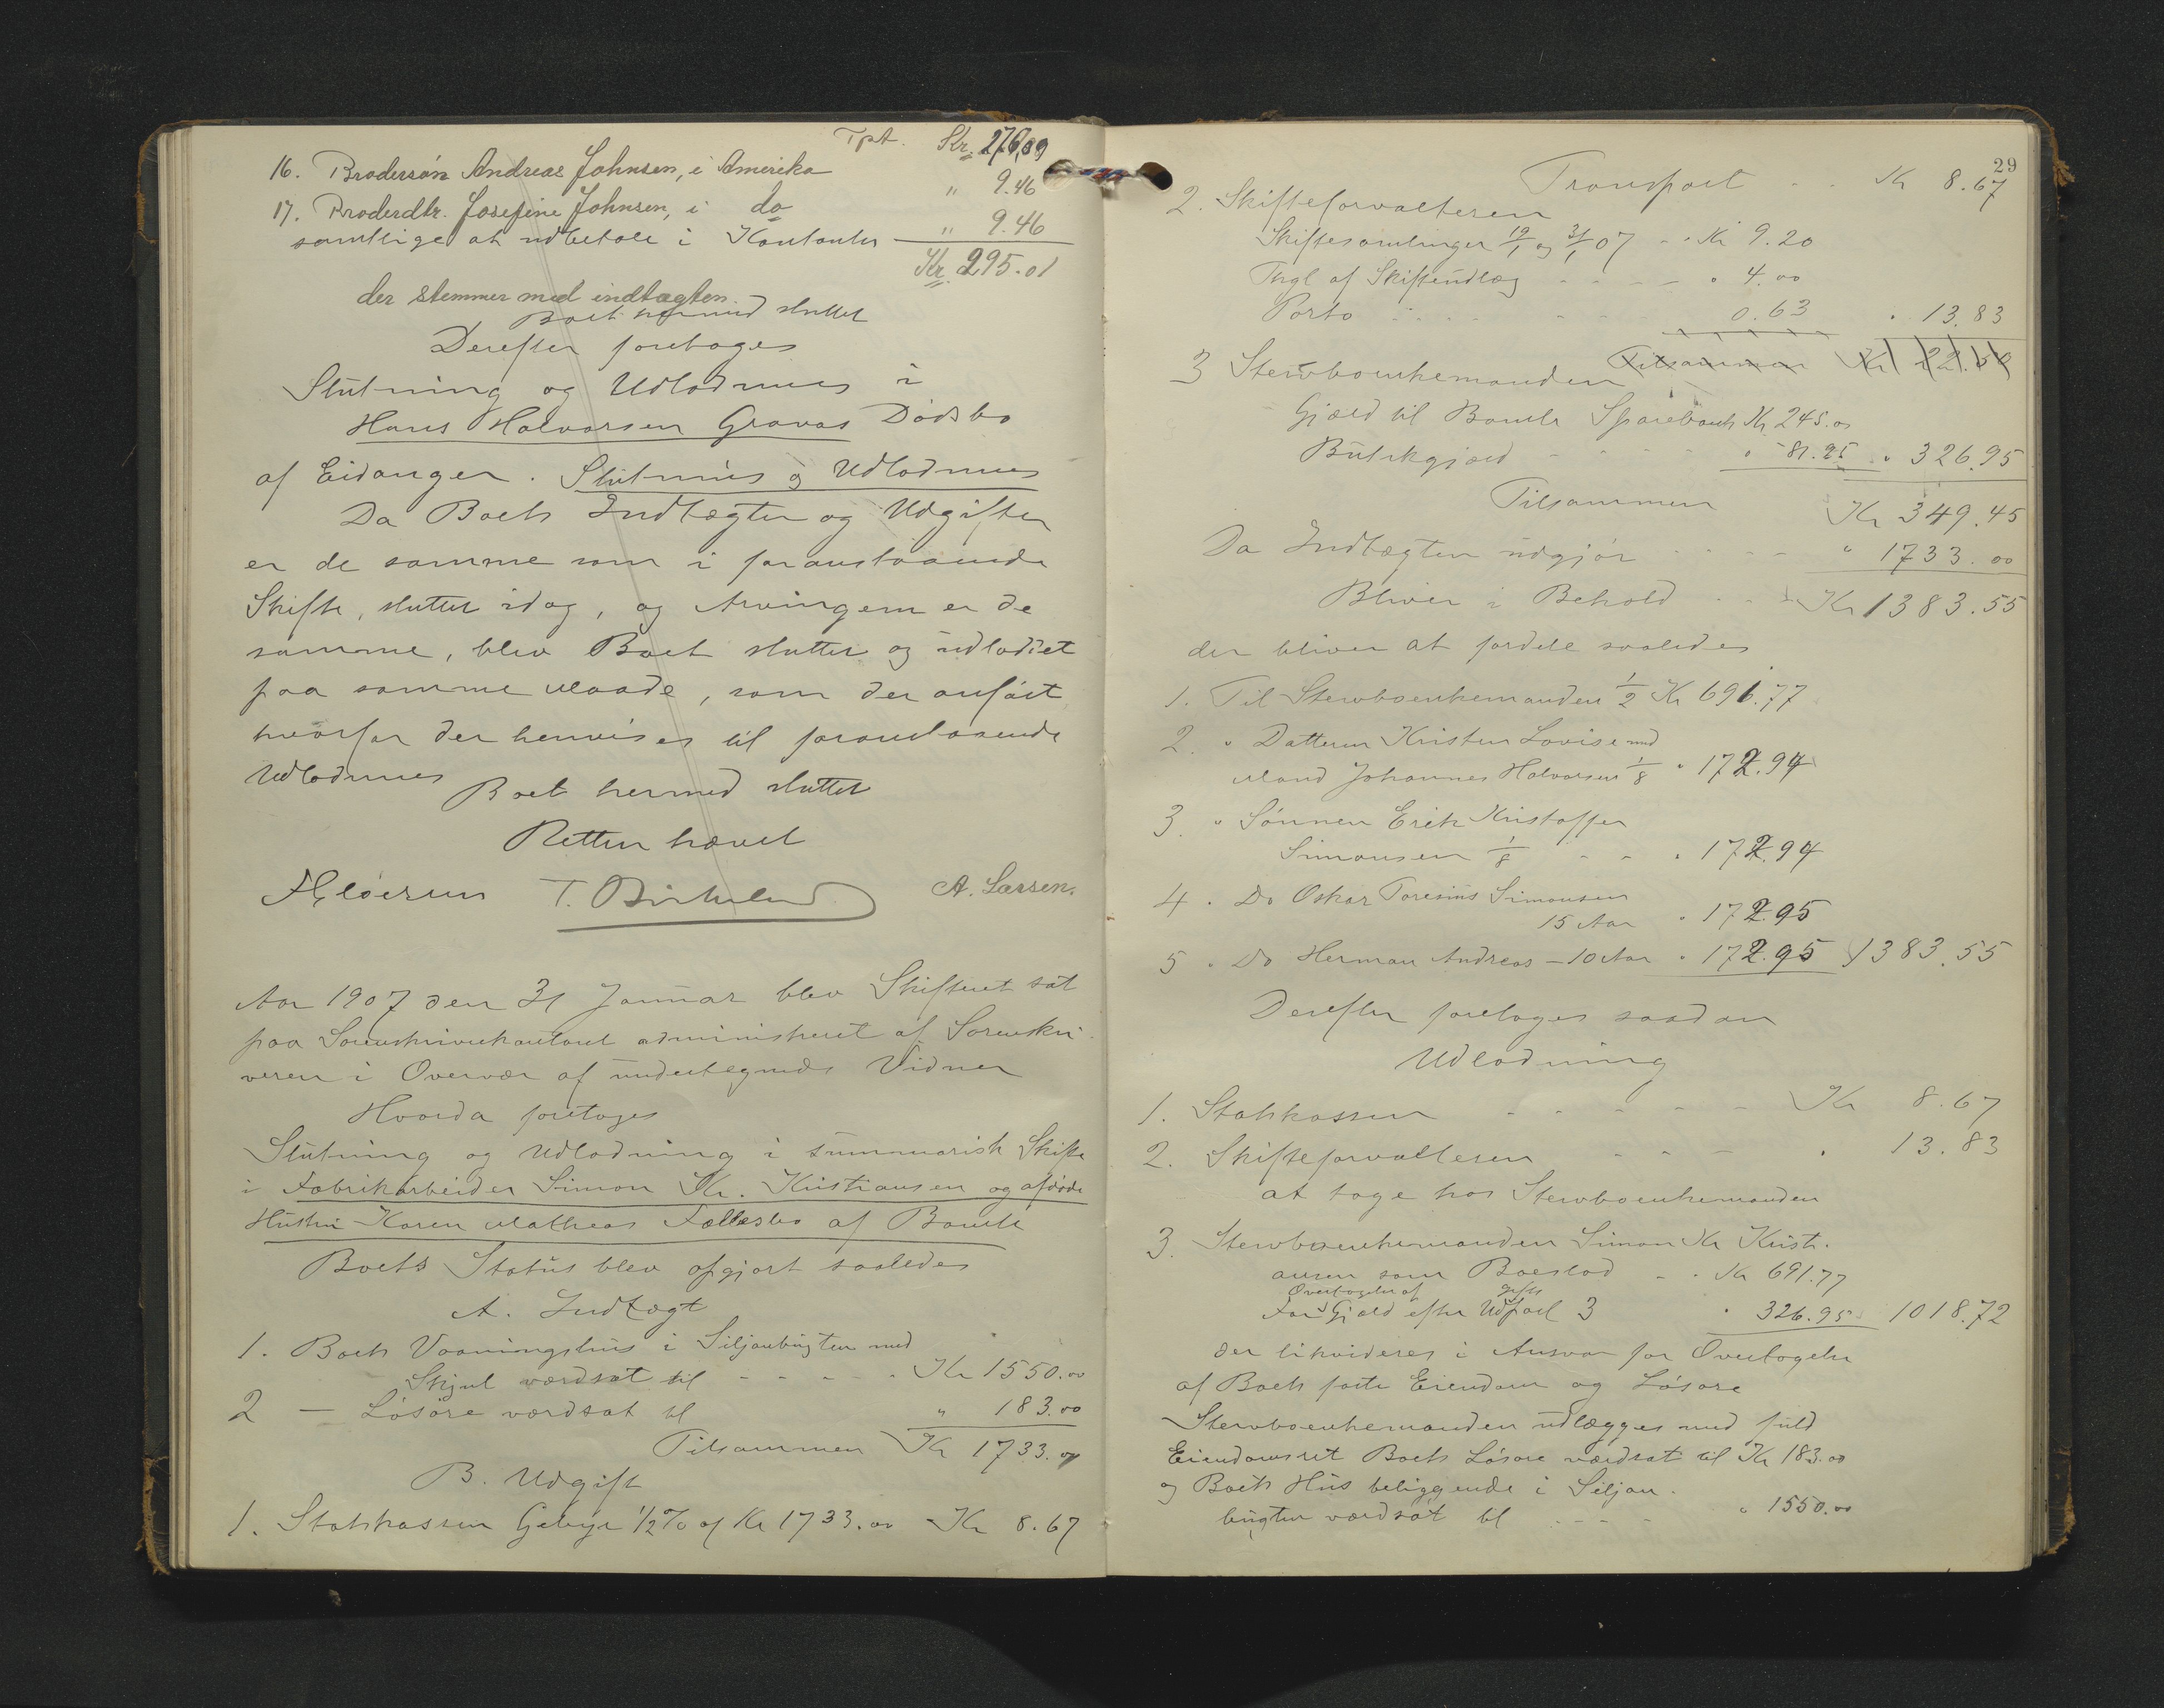 Tpt. Kr. 276,09
16. Brodersøn Andreas Johnsen, i Amerika " 9.46
17. Broderdtr. Josefine Johnsen, i do " 9.46
samtlige at udbetale i Kontanter Kr. 295.01
der stemmer med indtægten.
Boet hermed sluttet
Derefter foretages
Slutning og Udlodning i
Hans Halvorsen Gravas Dødsbo
af Eidanger. Slutning og Udlodning
Da Boets Indtægter og Udgifter
er de samme som i foranstaaende
Skifte, sluttet idag, og Arvingerne er de
samme, blev Boet sluttet og udloddet
paa samme Maade, som der anført
hvorfor der henvises til foranstaaende
Udlodning
Boet hermed sluttet
Retten hævet
T. Birkeland A. Larsen.
Aar 1907 den 31 Januar blev Skifteret sat
paa Sorenskriverkontoret administreret af Sorenskri-
veren i Overvær af undertegnede Vidner
Hvorda foretoges
Slutning og Udlodning i summarisk Skifte
i Fabrikarbeider Simon Kr. Kristiansen og afdøde
Hustru Karen Matheas Fællesbo af Bamle
Boets Status blev opgjort saaledes
A. Indtægt
1. Boets Vaaningshus i Siljanbugten med
Skjul værdsat til - - - - - Kr 1550.00
2 — Løsøre værdsat til " 183.00
Tilsammen Kr 1733.00
B. Udgift
1. Statskassen Gebyr 1/2% af Kr 1733.00 Kr 8.67
29
Transport - - Kr 8.67
2. Skifteforvalteren
Skiftesamlinger 19/1 og 31/1 07 - - Kr 9.20
Tngl af Skifteudlæg - - - - " 4.00
Porto - - - - 0.63 " 13.83
Tilsammen Kr 22.50
3 Stervboenkemanden
Gjæld til Bamle Sparebank Kr 245.00
Butikgjæld - - - - " 81.95 " 326.95
Tilsammen Kr 349.45
Da Indtægten udgjør - - - - " 1733.00
Bliver i Behold - - - Kr 1383.55
der bliver at fordele saaledes
1. Til Stervboenkemanden 1/2 Kr 691.77
2. " Datteren Kristen Lovise med
Mand Johannes Halvorsen 1/8 " 172.94
3. " Sønnen Erik Kristoffer
Simonsen 1/8 - - " 172.94
4 " Do Oskar Toresius Simonsen
15 Aar " 172.95
5 " Do Herman Andreas – 10 Aar " 172.95 1383.55
Derefter foretages saadan
Udlodning
1. Statskassen - - - - - - Kr 8.67
2. Skifteforvalteren - - - " 13.83
at tage hos Stervboenkemanden
3. Stervboenkemanden Simon Kr Kristi-
ansen som Boeslod - - Kr 691.77
Overtagelse af gifts
For Gjæld efter Udpost 3 " 326.95 1018.72
der likvideres i Ansvar for Overtagelse
af Boets faste Eiendom og Løsøre
Stervboenkemanden udlægges med fuld
Eiendomsret Boets Løsøre værdsat til Kr 183.00
og Boets Hus beliggende i Siljan-
bugten værdsat til - - - - " 1550.00